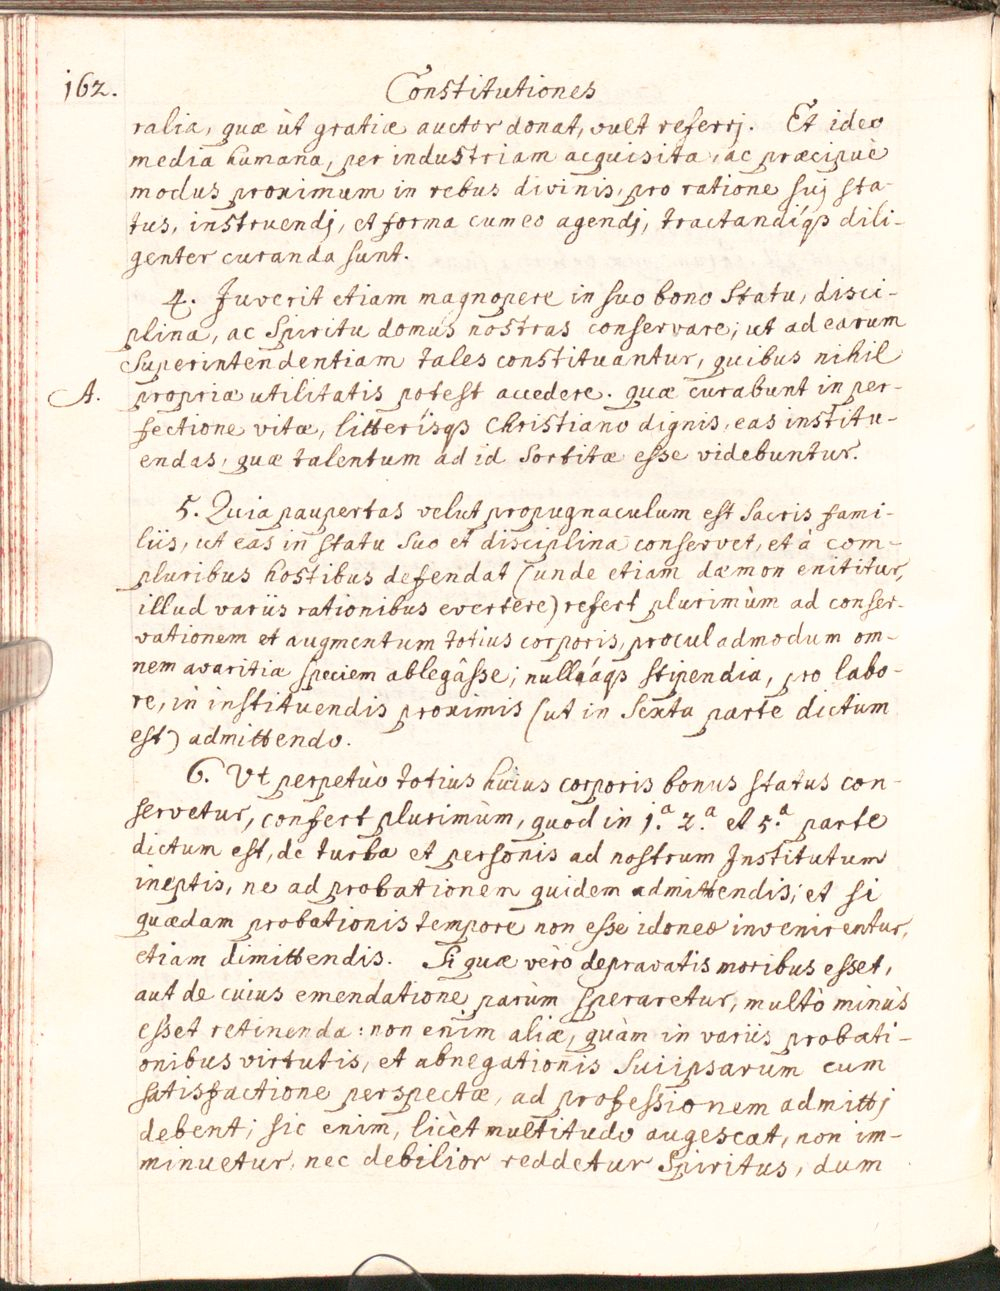 162.
Constitutiones
ralia, quæ ùt gratiæ auctor donat, vult referrj. Et ideo
media humana, per industriam acquisita, ac præcipuè
modus proximum in rebus divinis, pro ratione suj sta-
tus, instruendj, et forma cum eo agendj, tractandíqȝ dili-
genter curanda sunt.
4. Juverit etiam magnopere in suo bono Statu, disci-
plina, ac Spiritu domus nostras conservare; ut ad earum
Superintendentiam tales constituantur, quibus nihil
A. propriæ utilitatis potest accedere. quæ curabunt in per-
fectione vitæ, litterísqȝ Christiano dignis, eas institu-
endas, quæ talentum ad id Sortitæ esse videbuntur.
5. Quia paupertas velut propugnaculum est Sacris fami-
liis, ut eas in statu Suo et disciplina conservet, et à com-
pluribus hostibus defendat (unde etiam dæmon enititur,
illud variis rationibus evertere) refert plurimùm ad conser-
vationem et augmentum totius corporis, procul admodum om-
nem avaritiæ speciem ablegâsse; nulláqȝ stipendia, pro labo-
re, in instituendis proximis (ut in Sexta parte dictum
est) admittendo.
6. Vt perpetuò totius huius corporis bonus status con-
servetur, confert plurimùm, quod in 1.ª 2.ª et 5.ª parte
dictum est, de turba et personis ad nostrum Institutum
ineptis, ne ad probationem quidem admittendis; et si
quædam probationis tempore non esse idoneæ invenirentur,
etiam dimittendis. Si quæ verò depravatis moribus esset,
aut de cuius emendatione parùm speraretur, multò minùs
esset retinenda: non enim aliæ, quàm in variis probati-
onibus virtutis, et abnegationis Suiipsarum cum
satisfactione perspectæ, ad professionem admittj
debent; sic enim, licèt multitudo augescat, non im-
minuetur, nec debilior reddetur Spiritus, dum